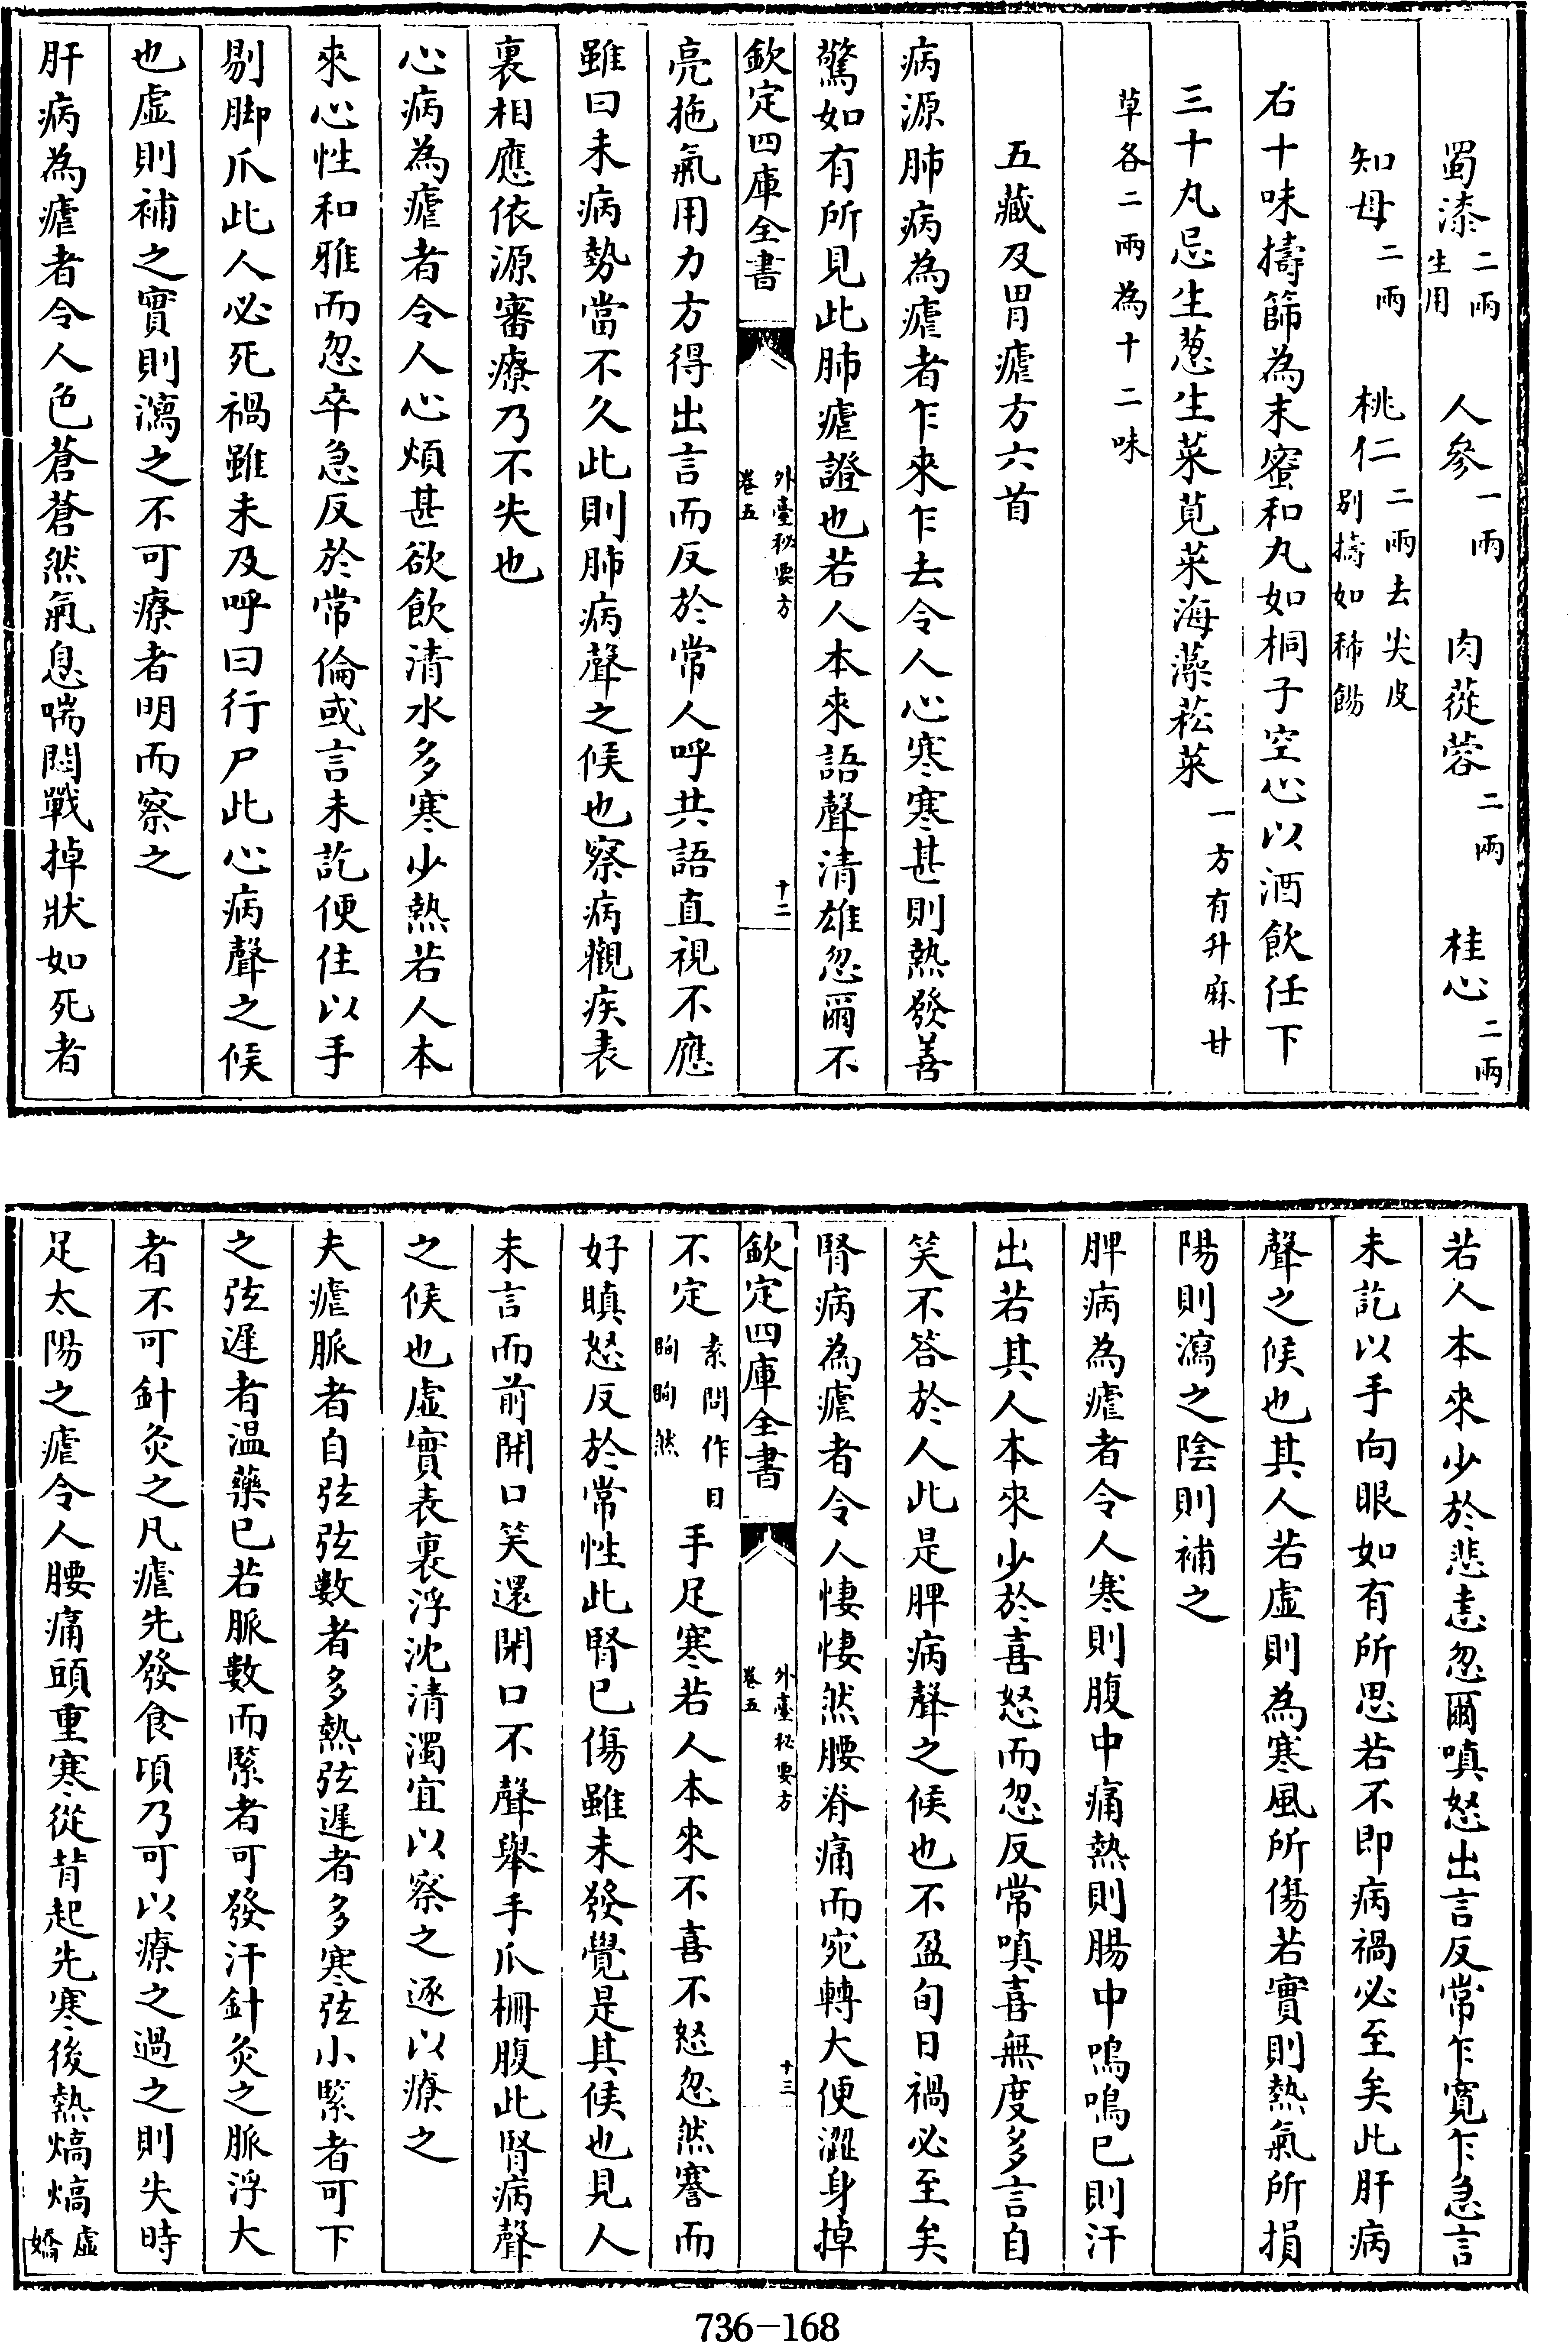 蜀漆二兩生用　人參一兩　肉蓯蓉二兩　桂心二兩
知母二兩　桃仁二兩去尖皮別擣如稀餳
右十味擣篩為末蜜和丸如桐子空心以酒飲任下
三十丸忌生葱生菜莧菜海藻菘菜一方有升麻甘
草各二兩為十二味
五藏及胃瘧方六首
病源肺病為瘧者乍來乍去令人心寒寒甚則熱發善
驚如有所見此肺瘧證也若人本來語聲清雄忽爾不
欽定四庫全書　外臺秘要方卷五　十二
亮拖氣用力方得出言而反於常人呼共語直視不應
雖曰未病勢當不久此則肺病聲之候也察病觀疾表
裏相應依源審療乃不失也
心病為瘧者令人心煩甚欲飲清水多寒少熱若人本
來心性和雅而忽卒急反於常倫或言未訖便住以手
剔脚爪此人必死禍雖未及呼曰行尸此心病聲之候
也虛則補之實則瀉之不可療者明而察之
肝病為瘧者令人色蒼蒼然氣息喘悶戰掉狀如死者
若人本來少於悲恚忽爾嗔怒出言反常乍寬乍急言
未訖以手向眼如有所思若不即病禍必至矣此肝病
聲之候也其人若虛則為寒風所傷若實則熱氣所損
陽則瀉之陰則補之
脾病為瘧者令人寒則腹中痛熱則腸中鳴鳴已則汗
出若其人本來少於喜怒而忽反常嗔喜無度多言自
笑不答於人此是脾病聲之候也不盈旬日禍必至矣
腎病為瘧者令人悽悽然腰脊痛而宛轉大便澀身掉
欽定四庫全書　外臺秘要方卷五　十三
不定素問作目眴眴然手足寒若人本來不喜不怒忽然謇而
好瞋怒反於常性此腎已傷雖未發覺是其候也見人
未言而前開口笑還閉口不聲舉手爪柵腹此腎病聲
之候也虛實表裏浮沈清濁宜以察之逐以療之
夫瘧脈者自弦弦數者多熱弦遲者多寒弦小緊者可下
之弦遲者温藥已若脈數而緊者可發汗針灸之脈浮大
者不可針灸之凡瘧先發食頃乃可以療之過之則失時
足太陽之瘧令人腰痛頭重寒從背起先寒後熱熇熇虛嬌
736-168